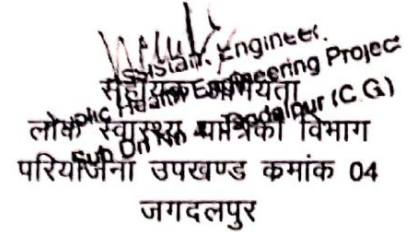 Assistant Engineer.
Public Health Engineering Project
Sub Dn No 4 Jagdalpur (C.G)
सहायक अभियंता
लोक स्वास्थ्य यांत्रिकी विभाग
परियोजना उपखण्ड कमांक 04
जगदलपुर